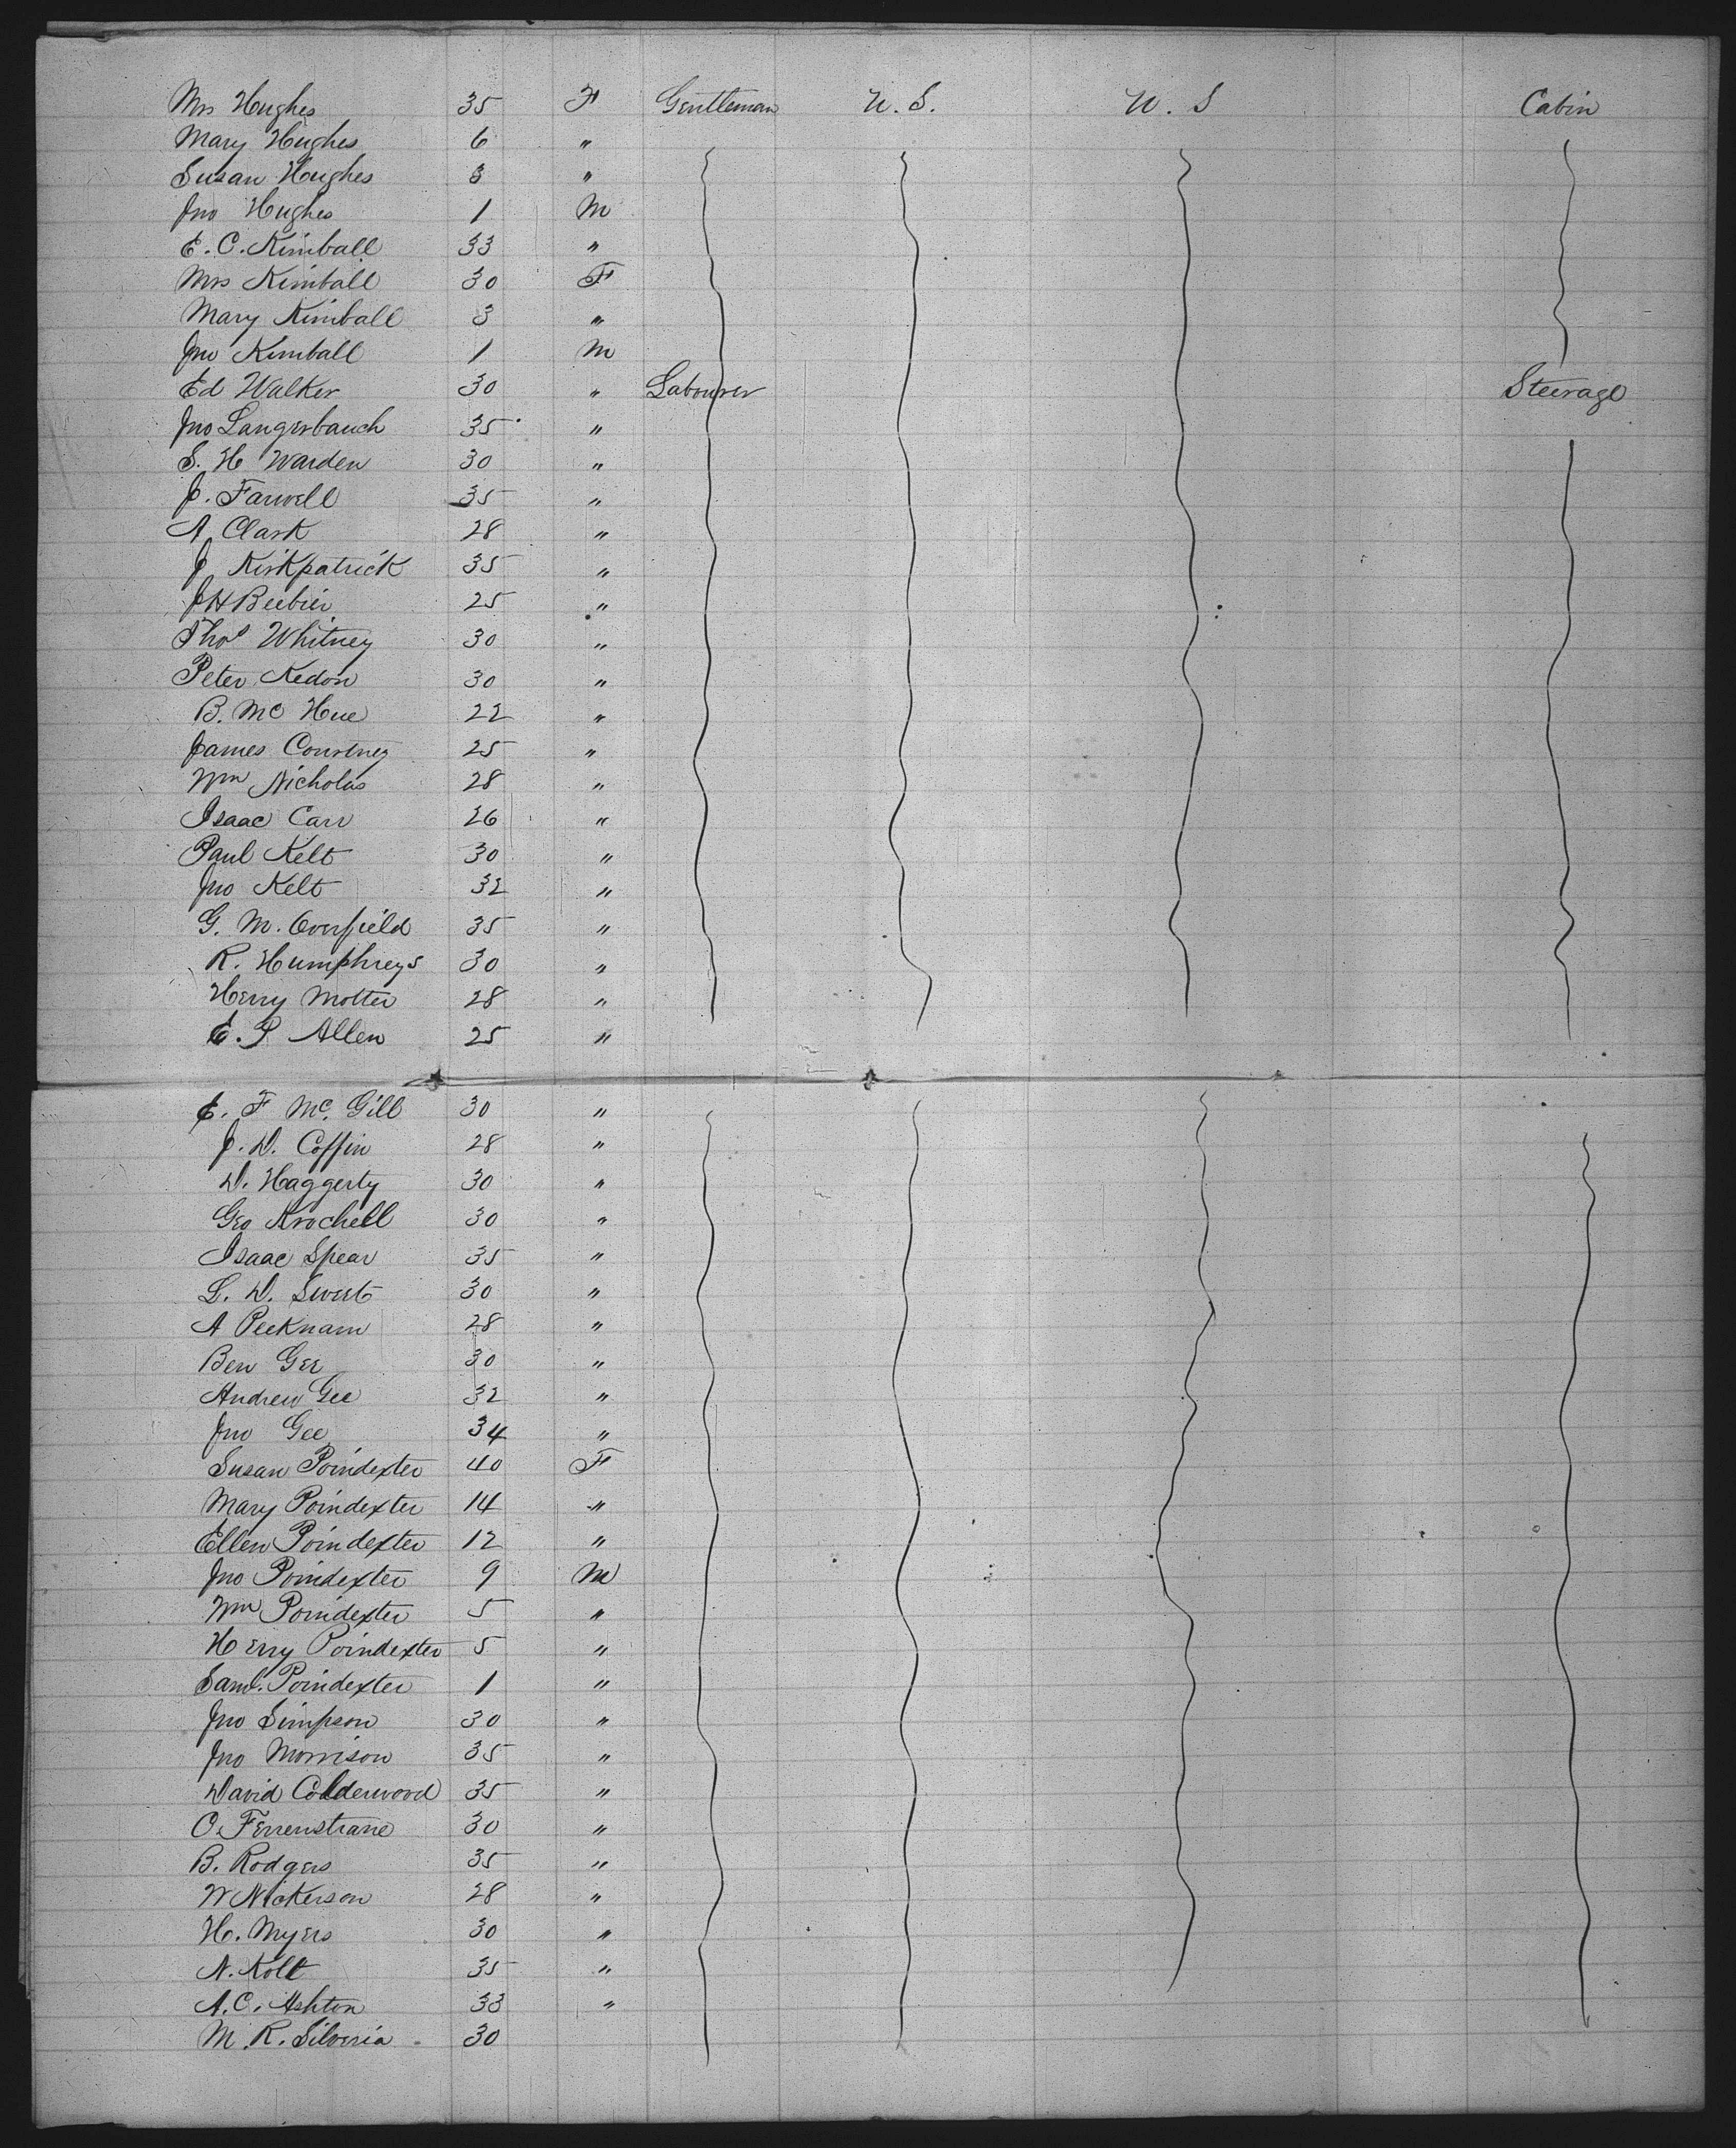 Mrs Hughes 35 F Gentleman U. S. U. S Cabin
Mary Hughes 6 "
Susan Hughes 3 "
Jno Hughes 1 M
E. C. Kimball 33 "
Mrs Kimball 30 F
Mary Kimball 3 "
Jno Kimball 1 M
Ed Walker 30 " Labourer Steerage
Jno Langerbauch 35 "
S. H Warden 30 "
J. Farwell 35 "
A Clark 28 "
J Kirkpatrick 35 "
J H Beebier 25 "
Thos Whitney 30 "
Peter Kedon 30 "
B. Mc Hue 22 "
James Courtney 25 "
Wm Nicholas 28 "
Isaac Carr 26 "
Paul Kelt 30 "
Jno Kelt 32 "
G. M. Overfield 35 "
R. Humphreys 30 "
Henry Motter 28 "
E. P Allen 25 "
E. F Mc. Gill 30 "
J. D. Coffin 28 "
D. Haggerty 30 "
Geo Krochell 30 "
Isaac Spear 35 "
L. D. Swert 30 "
A Peeknam 28 "
Ben Gee 30 "
Andrew Gee 32 "
Jno Gee 34 "
Susan Poindexter 40 F
Mary Poindexter 14 "
Ellen Poindexter 12 "
Jno Poindexter 9 M
Wm Poindexter 5 "
Henry Poindexter 5 "
Saml. Poindexter 1 "
Jno Simpson 30 "
Jno Morrison 35 "
David Colderwood 35 "
O. Ferrenstrane 30 "
B. Rodgers 35 "
W Nickerson 28 "
H. Myers 30 "
N. Kolt 35 "
A. C. Ashton 33 "
M. R. Silveria 30